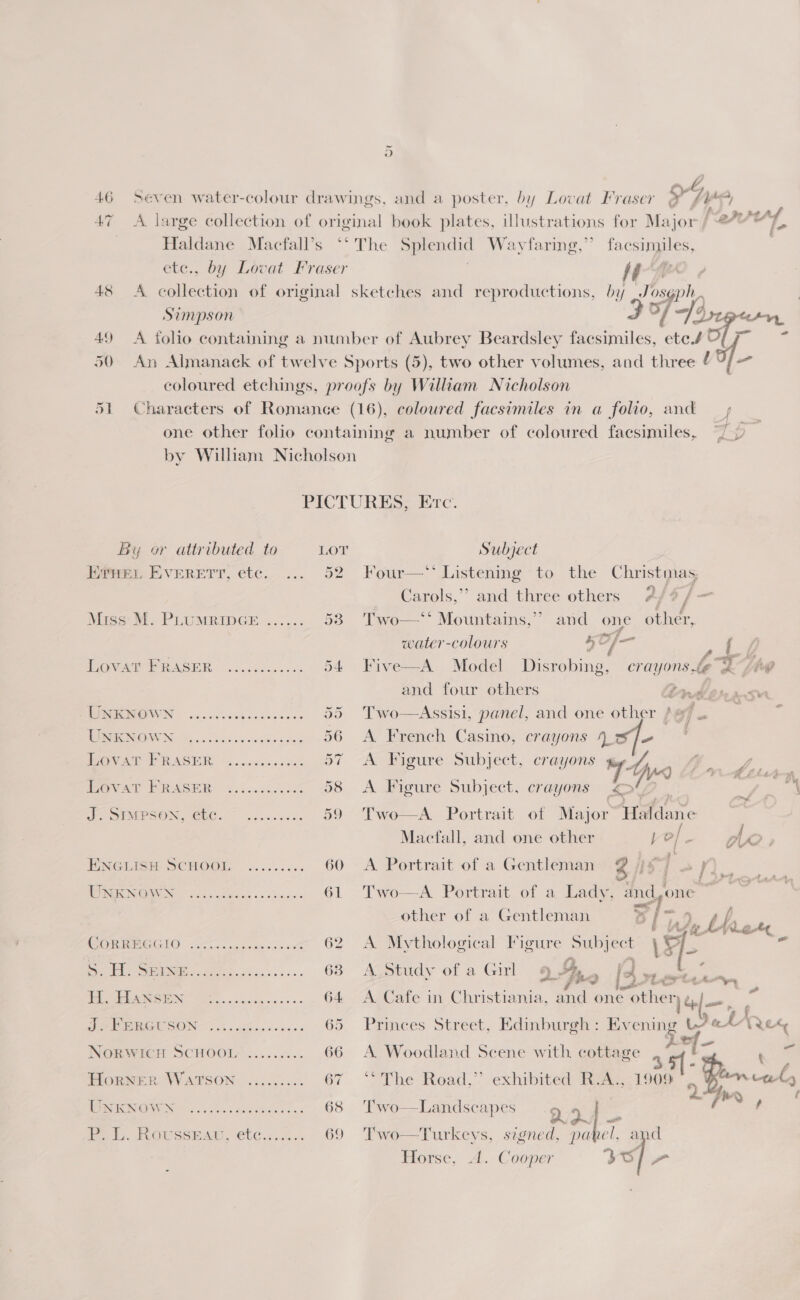 5
46 Seven water-colour drawings, and a poster, by Lovat Fraser
47 A large collection of original book plates, illustrations for Major
Haldane Macfall's “The Splendid Wayfaring,” facsimiles,
etc., by Lovat Fraser
48 A collection of original sketches and reproductions, by Joseph
Simpson 30/-
49 A folio containing a number of Aubrey Beardsley facsimiles, etc.
50 An Almanack of twelve Sports (5), two other volumes, and three
coloured etchings, proofs by William Nicholson
51 Characters of Romance (16), coloured facsimiles in a folio, and
one other folio containing a number of coloured facsimiles,
by William Nicholson
PICTURES, Etc.
By or attributed to LOT Subject
Ethel Everett, etc. ... 52 Four—“Listening to the Christmas
Carols,” and three others
Miss M. Plumridge ...... 53 Two—“Mountains,” and one other,
water-colours 50/-
Lovat Fraser ............ 54 Five—A Model Disrobing, crayons
and four others
Unknown .................. 55 Two—Assisi, panel, and one other
Unknown .................. 56 A French Casino, crayons
Lovat Fraser ............ 57 A Figure Subject, crayons
Lovat Fraser ............ 58 A Figure Subject, crayons
J. Simpson, etc. ......... 59 Two—A Portrait of Major Haldane
Macfall, and one other
English School ......... 60 A Portrait of a Gentleman
Unknown .................. 61 Two—A Portrait of a Lady, and one
other of a Gentleman
Correggio .................. 62 A Mythological Figure Subject
S. H. Seine .................. 63 A Study of a Girl
H. Hansen ............... 64 A Cafe in Christiania, and one other
J. Ferguson ............... 65 Princes Street, Edinburgh: Evening
Norwich School ......... 66 A Woodland Scene with cottage
Horner Watson ......... 67 “The Road,” exhibited R.A., 1909
Unknown .................. 68 Two—Landscapes
P. L. Rousseau, etc....... 69 Two—Turkeys, signed, panel, and
Horse, A. Cooper 30/-